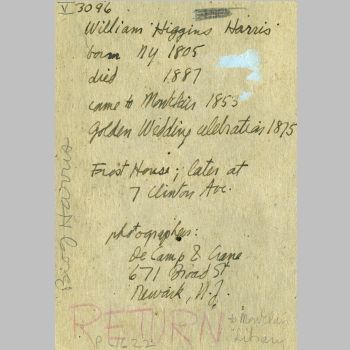 V 3096
William Higgins Harris
born NY 1805
died 1887
came to Montclair 1853
Golden Wedding celebration 1875
Frost House; later at
7 Clinton Ave.
photographer:
DeCamp & Crane
671 Broad St
Newark, N.J.
RETURN
to Montclair
Library